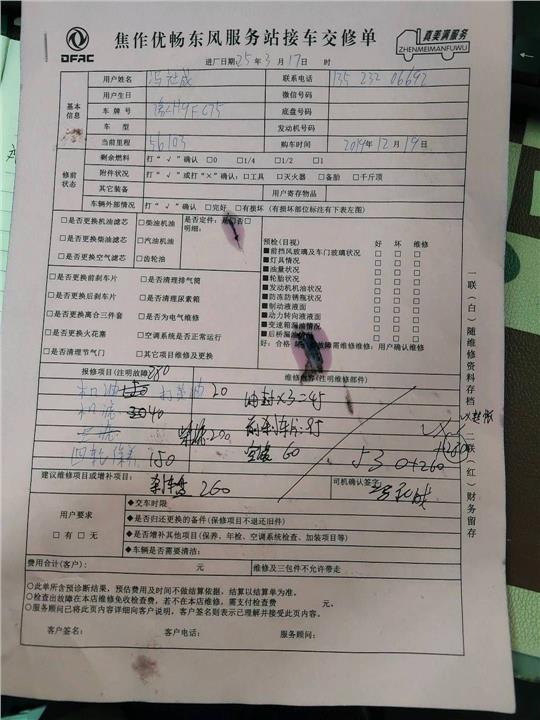 DFAC
焦作优畅东风服务站接车交修单
真美满服务
ZHENMEIMANFUWU
进厂日期25年3月17日 时
基本信息
用户姓名 联系电话 135 232 06692
用户生日 微信号码
车牌号 底盘号码
车型 发动机号码
当前里程 56103 购车时间 2019年12月19日
修前状态
剩余燃料 打“√”确认 □0 □1/4 □1/2 □1
附件状况 打“√”或打“×”确认:□工具 □灭火器 □备胎 □千斤顶
其它装备 用户寄存物品
车辆外部情况 打“√”确认 □完好 □有损坏 (有损坏部位标注有下表左图)
□是否更换机油滤芯 □柴油机油 是否定件:是□否□
□是否更换柴油滤芯 □汽油机油 明细:
□是否更换空气滤芯 □齿轮油
□是否更换前刹车片 □是否清理排气筒
□是否更换后刹车片 □是否清理尿素箱
□是否更换离合三件套 □是否为电气维修
□是否更换火花塞 □空调系统是否正常运行
□是否清理节气门 □其它项目维修及更换
预检(目视) 好 坏 维修
■前挡风玻璃及车门玻璃状况
■灯具情况
■油量状况
■轮胎状况
■发动机机油情况
■防冻防锈瓶状况
■制动液液面
■动力转向液液面
■变速箱漏油情况
■后桥漏油
好:合格 故障需维修维修:用户确认维修
报修项目(注明故障) 280
维修内容(注明维修部件)
机油 打黄油 20 油封×3=45
机滤 40 前刹车片:85
柴滤:200 空滤 60
四轮保养 150 530+260
建议维修项目或增补项目: 刹车盘 260
司机确认签字:
用户要求
□有 □无
◆交车时限
◆是否归还更换的备件(保修项目不退还旧件)
◆是否增补其他项目(保养、年检、空调系统检查、加装项目等)
◆车辆是否需要清洁:
费用合计(客户): 元 维修及三包件不允许带走
○此单所含预诊断结果,预估费用及时间不做结算依据,结算以结算单为准。
○检查出故障在本店维修免收检查费,若不在本店维修,需支付检查费 元。
○服务顾问已将此页内容详细向客户说明,客户签名则表示已理解并接受此页内容。
客户签名: 客户电话: 服务顾问:
一联(白)随维修资料存档
二联(红)财务留存